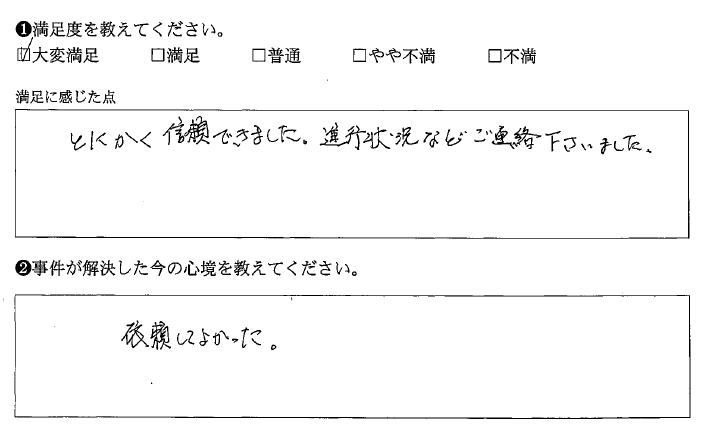 ❶満足度を教えてください。
☑大変満足 □満足 □普通 □やや不満 □不満
満足に感じた点
とにかく信頼できました。進行状況などご連絡下さいました。
❷事件が解決した今の心境を教えてください。
依頼してよかった。